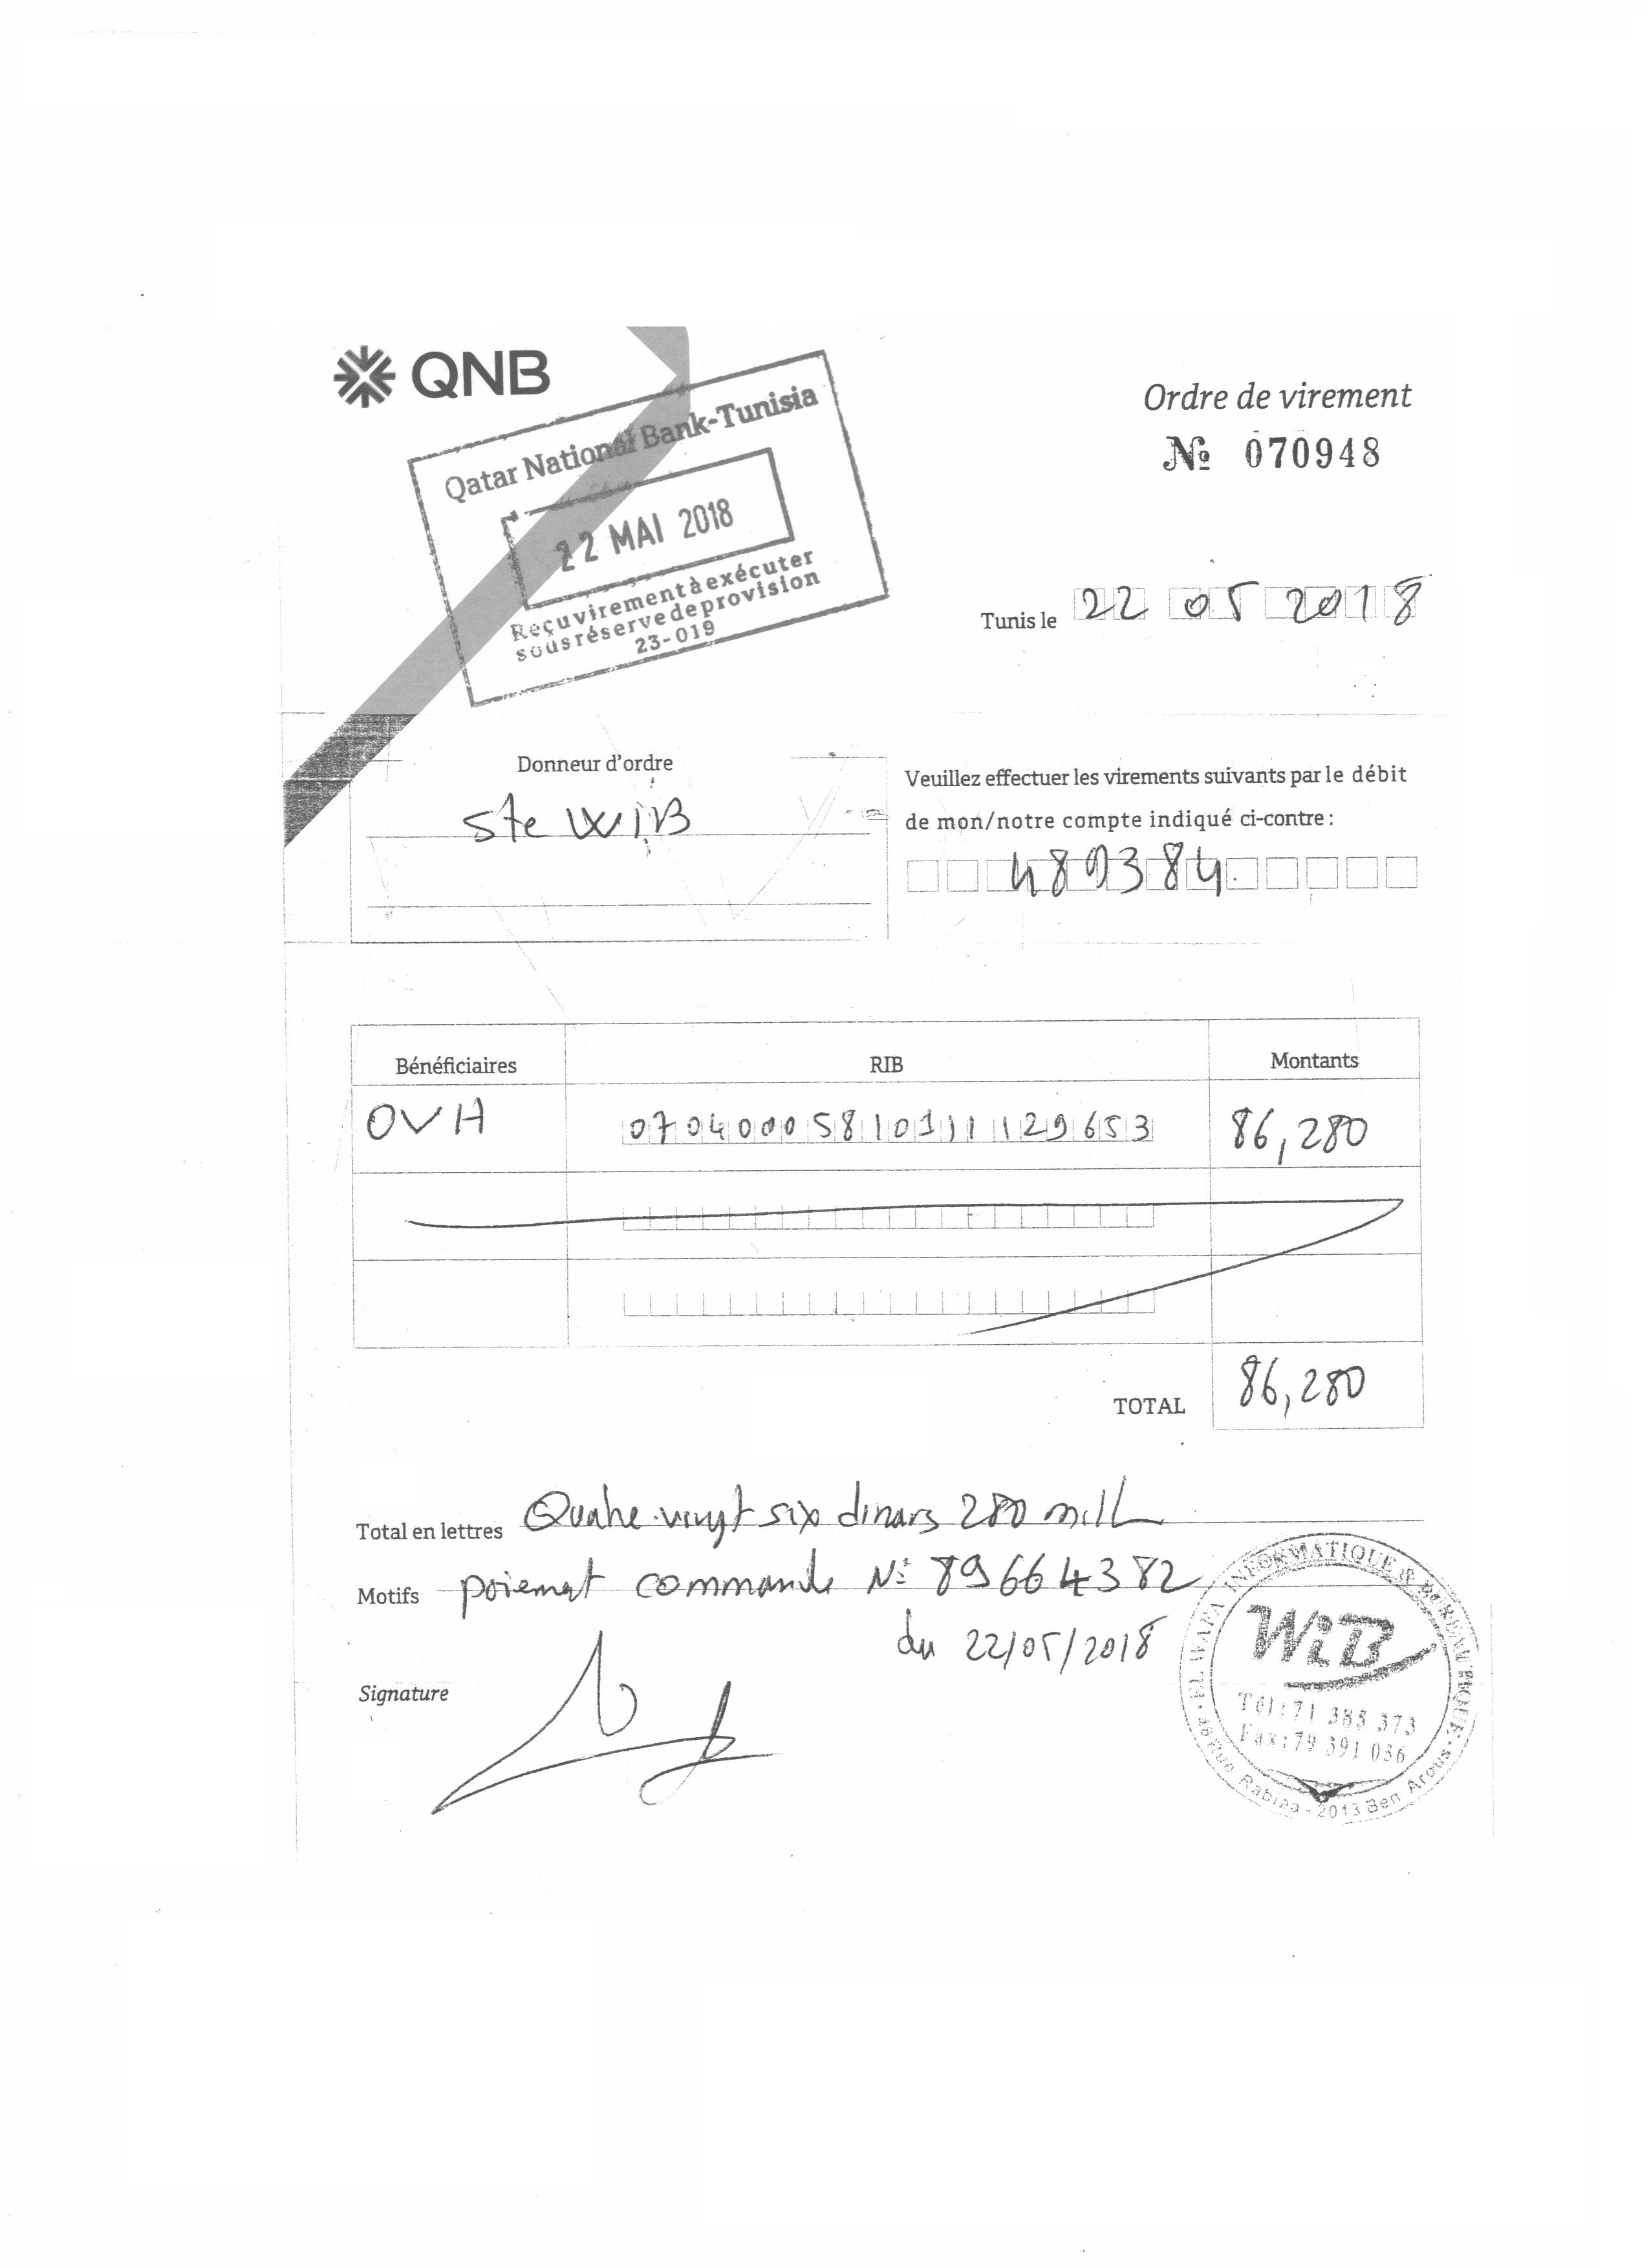 QNB
Ordre de virement
№ 070948
Qatar National Bank-Tunisia
22 MAI 2018
Reçu virement à exécuter
sous réserve de provision
23-019
Tunis le 22 05 2018
Donneur d'ordre
Ste WIB
Veuillez effectuer les virements suivants par le débit
de mon/notre compte indiqué ci-contre :
489384
Bénéficiaires RIB Montants
OVH 07040005810111129653 86,280
TOTAL 86,280
Total en lettres Quatre-vingt six dinars 280 mill
Motifs poiement commande N° 89664382
du 22/05/2018
Signature
EL WAFA INFORMATIQUE & BUREAUTIQUE
WiB
Tél : 71 385 373
Fax : 79 391 036
48 Rue Rabiaa - 2013 Ben Arous